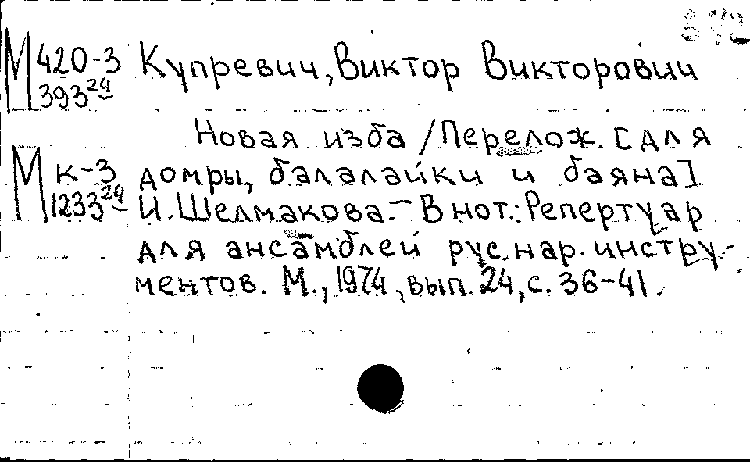 М 420-3 Купревич, Виктор Викторович
393²⁴
Новая изба / Перелож. [для
М к-3 домры, балалайки и баяна]
1233²⁴ И. Шелмакова. - В нот.: Репертуар
для ансамблей рус. нар. инстру-
ментов. М., 1974, вып. 24, с. 36-41.